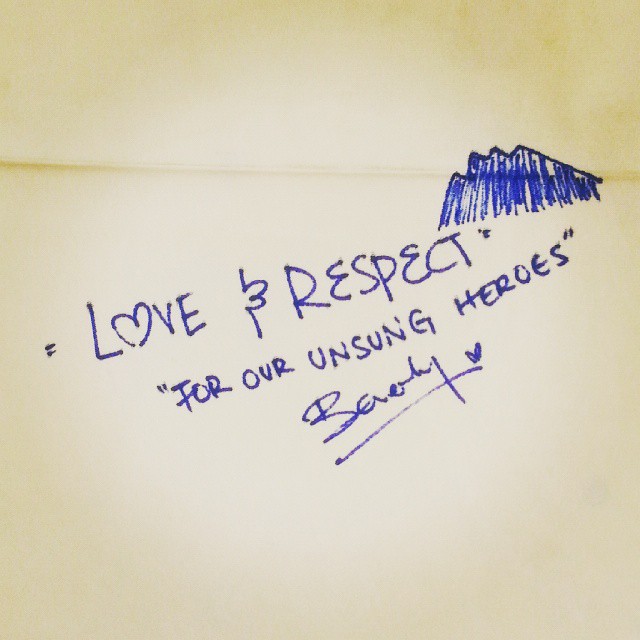 "LOVE & RESPECT"
"FOR OUR UNSUNG HEROES"
Beverly